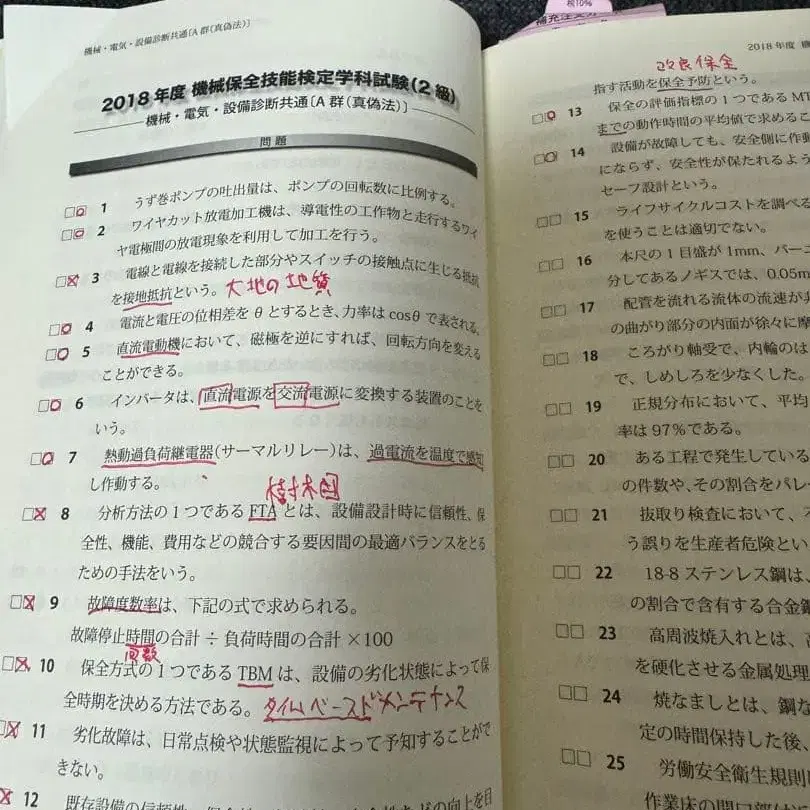 機械・電気・設備診断共通〔A 群(真偽法)〕
2018 年度 機械保全技能検定学科試験(2 級)
機械・電気・設備診断共通〔A 群(真偽法)〕
問題
□□ 1 うず巻ポンプの吐出量は、ポンプの回転数に比例する。
□□ 2 ワイヤカット放電加工機は、導電性の工作物と走行するワイ
ヤ電極間の放電現象を利用して加工を行う。
□□ 3 電線と電線を接続した部分やスイッチの接触点に生じる抵抗
を接地抵抗という。大地の地質
□□ 4 電流と電圧の位相差を θ とするとき、力率は cosθ で表される。
□□ 5 直流電動機において、磁極を逆にすれば、回転方向を変える
ことができる。
□□ 6 インバータは、直流電源を交流電源に変換する装置のことを
いう。
□□ 7 熱動過負荷継電器(サーマルリレー)は、過電流を温度で感知
し作動する。
樹木図
□□ 8 分析方法の 1 つである FTA とは、設備設計時に信頼性、保
全性、機能、費用などの競合する要因間の最適バランスをとる
ための手法をいう。
□□ 9 故障度数率は、下記の式で求められる。
故障停止時間の合計 ÷ 負荷時間の合計 ×100
回数
□□ 10 保全方式の 1 つである TBM は、設備の劣化状態によって保
全時期を決める方法である。タイムベースドメンテナンス
□□ 11 劣化故障は、日常点検や状態監視によって予知することがで
きない。
12 既存設備の信頼性
税10%
補充注文カ
2018 年度 機
改良保全
指す活動を保全予防という。
□□ 13 保全の評価指標の 1 つである MT
までの動作時間の平均値で求めるこ
□□ 14 設備が故障しても、安全側に作動
にならず、安全性が保たれるよう
セーフ設計という。
□□ 15 ライフサイクルコストを調べる
を使うことは適切でない。
□□ 16 本尺の 1 目盛が 1mm、バーニ
分してあるノギスでは、0.05m
□□ 17 配管を流れる流体の流速が非
の曲がり部分の内面が徐々に摩
□□ 18 ころがり軸受で、内輪のは
で、しめしろを少なくした。
□□ 19 正規分布において、平均
率は 97％である。
□□ 20 ある工程で発生している
の件数や、その割合をパレー
□□ 21 抜取り検査において、
う誤りを生産者危険とい
□□ 22 18-8 ステンレス鋼は、
の割合で含有する合金鋼
□□ 23 高周波焼入れとは、高
を硬化させる金属処理
□□ 24 焼なましとは、鋼な
定の時間保持した後、
□□ 25 労働安全衛生規則
作業床の開口部